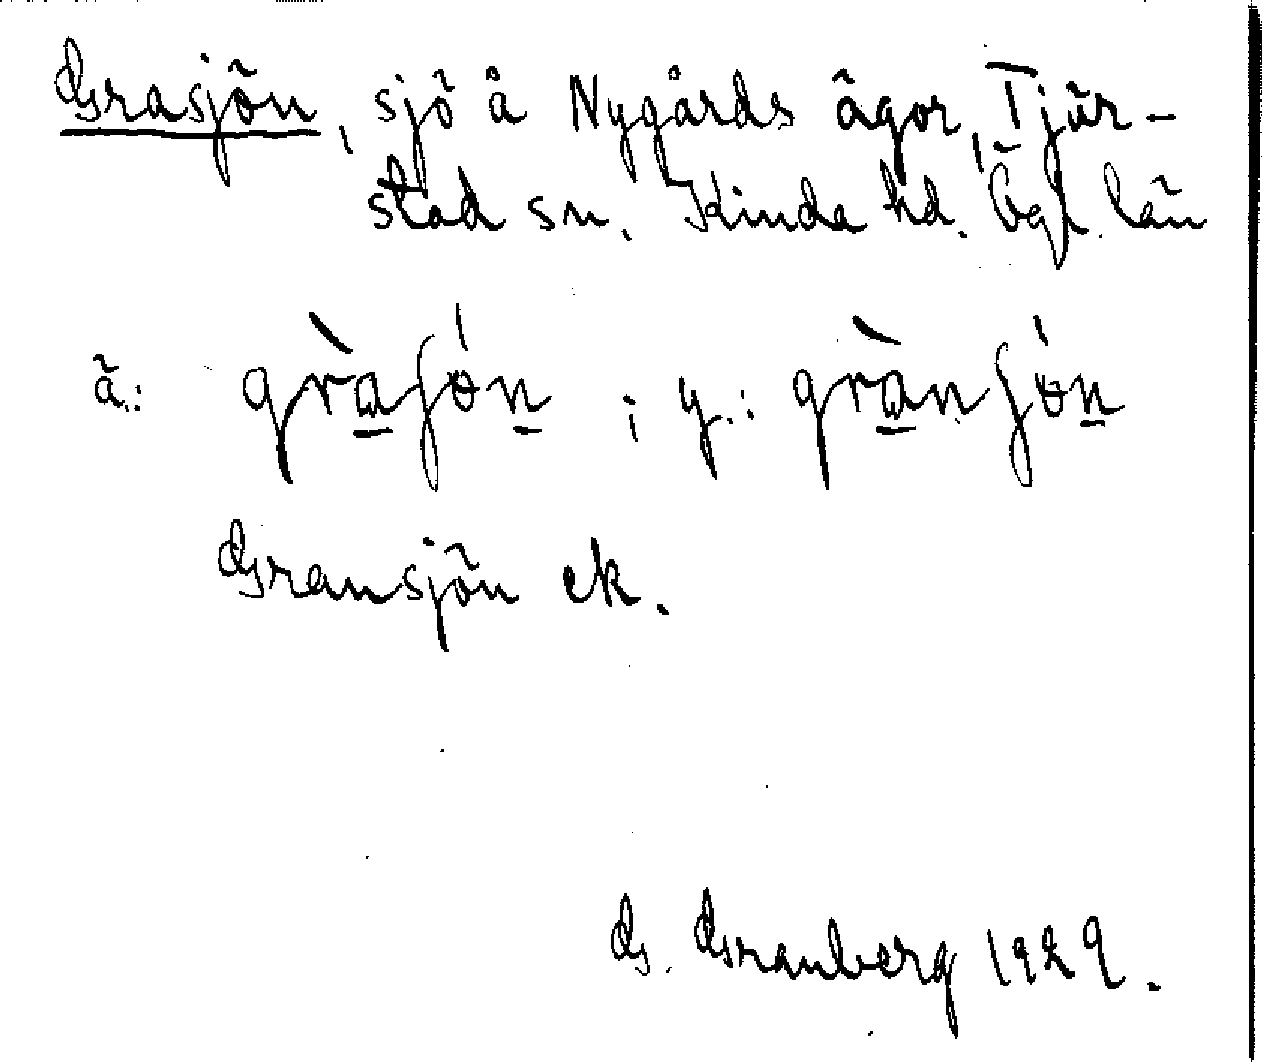 Grasjön, sjö å Nygårds ägor, Tjär-
stad sn. Kinda hd. Ögl. län
ä.: gràʃón ; y.: grànʃón
Gransjön ek.
G. Granberg 1929.